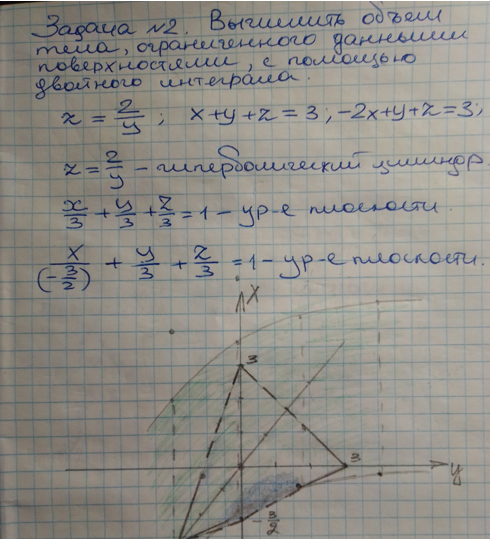 Задача №2. Вычислить объем
тела, ограниченного данными
поверхностями, с помощью
двойного интеграла.
z = 2/y ; x+y+z = 3 ; -2x+y+z=3;
z = 2/y – гиперболический цилиндр.
x/3 + y/3 + z/3 = 1 – ур-е плоскости.
x/(-3/2) + y/3 + z/3 = 1 – ур-е плоскости.
X
3
3
y